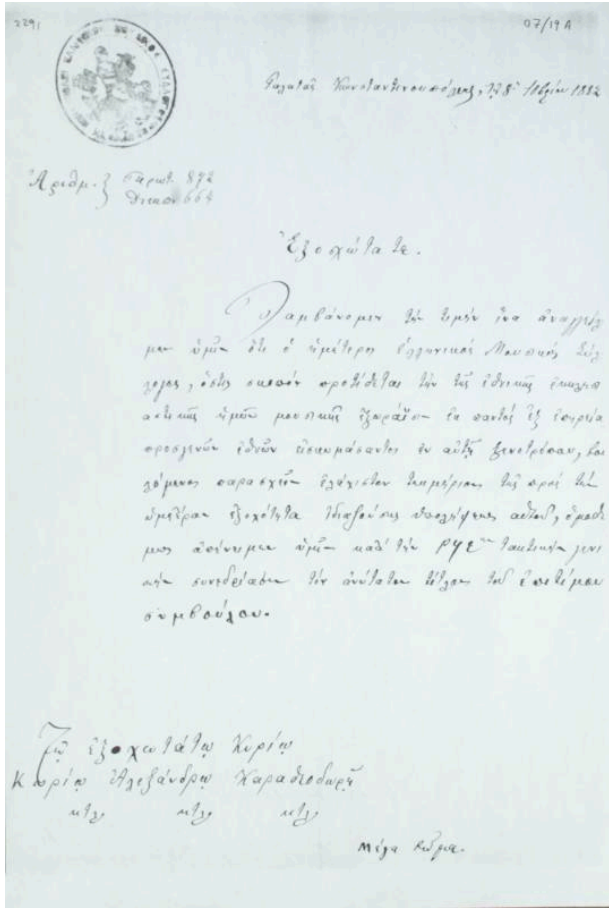 2291
07/19 A
Γαλατᾶς Κωνσταντινουπόλεως, τῇ 8ῃ 1882
Ἀριθμ. Πρωτ. 872
Διεκπ 664
Ἐξοχώτατε.
Λαμβάνομεν τὴν τιμὴν ἵνα ἀναγγείλω
μεν ὑμῖν ὅτι ὁ ἡμέτερος Ἑλληνικὸς Μουσικὸς Σύλ
λογος, ὅστις σκοπὸν προτίθεται τὴν τῆς ἐθνικῆς ἐκκλησι
αστικῆς ἡμῶν μουσικῆς ἐκ παντὸς ἐξ
ἐθνῶν ἐν αὐτῇ βου
λόμενος παρασχεῖν ἐλάχιστον τεκμήριον τῆς πρὸς τὴν
ὑμετέραν ἐξοχότητα ἰδιαζούσης ὑπολήψεως αὐτοῦ, ὁμοθύ
μως ἀπένειμεν ὑμῖν κατὰ τὴν ΡΥΕην τακτικὴν γενι
κὴν συνεδρίασιν τὸν ἀνώτατον τίτλον τοῦ ἐπιτίμου
συμβούλου.
Τῷ ἐξοχωτάτῳ Κυρίῳ
Κυρίῳ Ἀλεξάνδρῳ Καραθεοδωρῇ
κτλ κτλ κτλ
Μέγα Ρεῦμα.